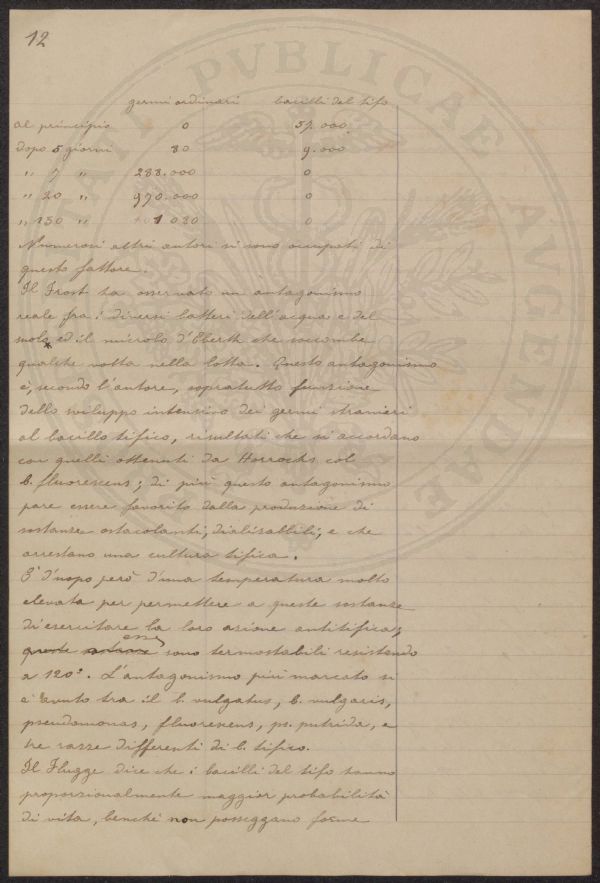 12
germi ordinari bacilli del tifo
al principio 0 57.000
dopo 5 giorni 80 9.000
" 7 " 288.000 0
" 20 " 970.000 0
" 150 " 1.080 0
Numerosi altri autori si sono occupati di
questo fattore.
Il Frost ha osservato un antagonismo
reale fra i diversi batteri dell'acqua e del
suolo ed il microbo d'Eberth che soccombe
qualche volta nella lotta. Questo antagonismo
è, secondo l'autore, sopratutto funzione
dello sviluppo intensivo dei germi stranieri
al bacillo tifico, risultati che si accordano
con quelli ottenuti da Horrocks col
b. fluorescens; di più questo antagonismo
pare essere favorito dalla produzione di
sostanze ostacolanti, dializabbili, e che
arrestano una cultura tifica.
E' d'uopo però d'una temperatura molto
elevata per permettere a queste sostanze
di esercitare la loro azione antitifica;
esse
queste sostanze sono termostabili resistendo
a 120°. L'antagonismo più marcato si
è avuto tra il b. vulgatus, b. vulgaris,
pseudomonas, fluorescens, ps. putrida, e
tre razze differenti di b. tifico.
Il Flugge dice che i bacilli del tifo hanno
proporzionalmente maggior probabilità
di vita, benché non posseggano forme
PVBLICAE AVGENDAE